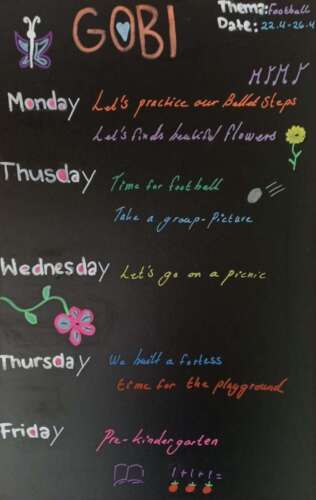 GOBI
Thema: Football
Date: 22.4-26.4
Monday
Let's practice our Ballet Steps
Let's finds beatiful flowers
Thusday
Time for football
Take a group-Picture
Wednesday
Let's go on a picnic
Thursday
We built a fortess
time for the playground
Friday
Pre-kindergarten
1+1+1=